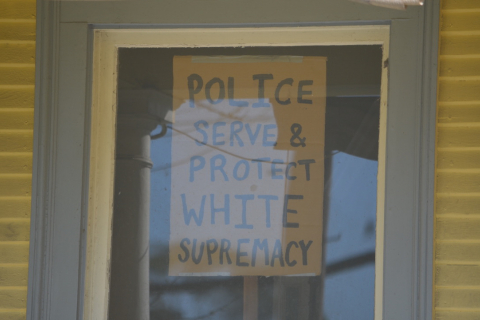 POLICE
SERVE &
PROTECT
WHITE
SUPREMACY